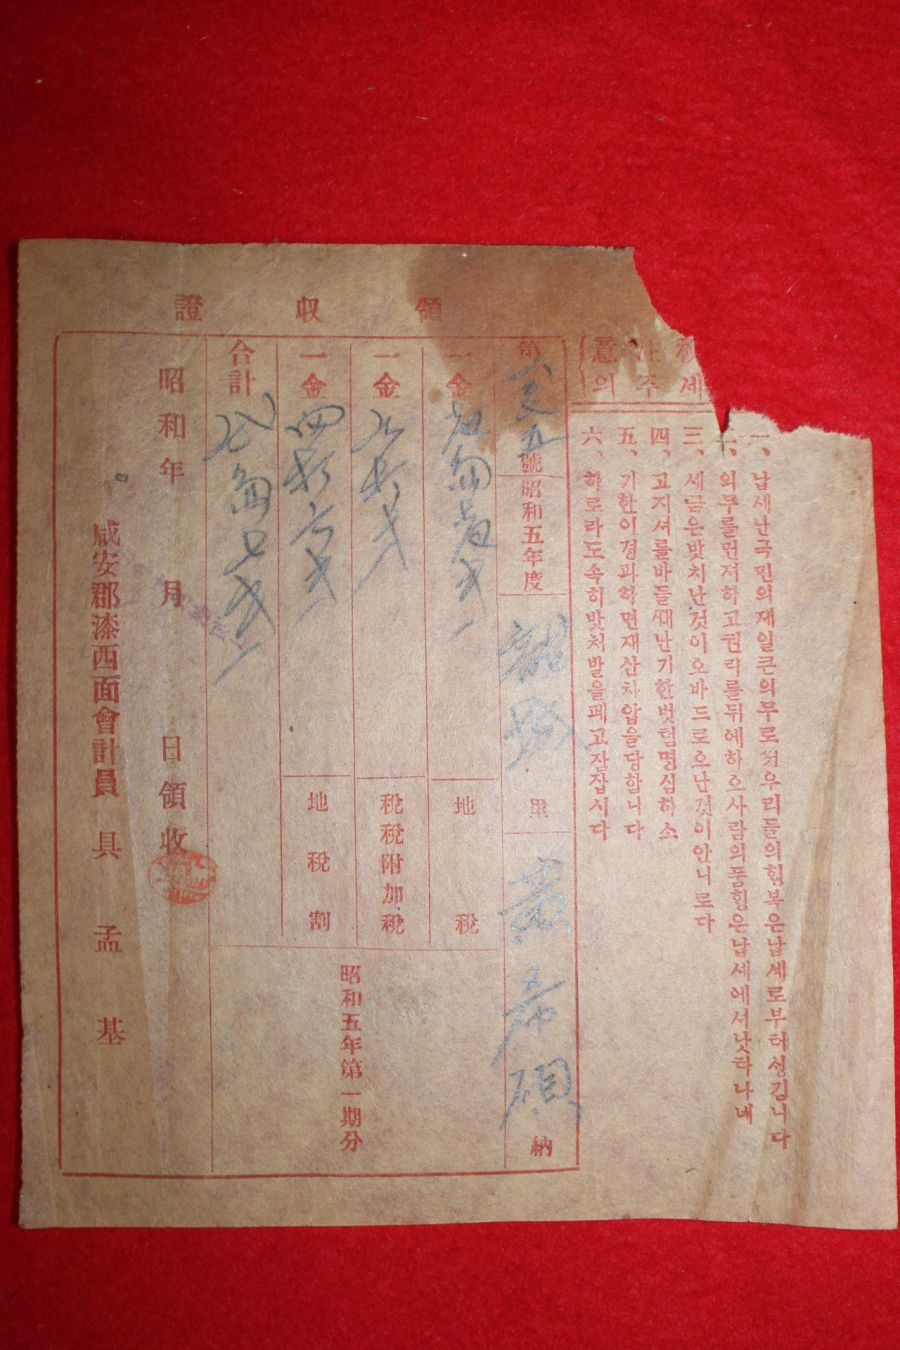 領収證
稅注意
세주의
一、납세난국민의제일큰의무로써우리들의힝복은납세로부터성김니다
二、의무를먼저하고권리를뒤에하오사람의품힝은납세에서낫타나내
三、세금은밧치난것이오바드로오난것이안니로다
四、고지셔를바들때난기한벗텀명심하소
五、기한이경과하면재산차압을당합니다
六、하로라도속히밧처발을폐고잠잡시다
第 號 昭和五年度 里 黃 碩 納
一金 地稅
一金 稅稅附加稅
一金 地稅割
合計
昭和五年第一期分
昭和 年 月 日領收
咸安郡漆西面會計員 具孟基